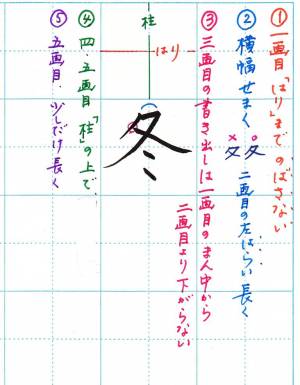 ① 一画目「はり」までのばさない
② 横幅せまく 二画目の左はらい長く
× 夂 ○ 夂
③ 三画目の書き出しは一画目のまん中から
二画目より下がらない
柱
はり
冬
④ 四・五画目「柱」の上で、
⑤ 五画目・少しだけ長く